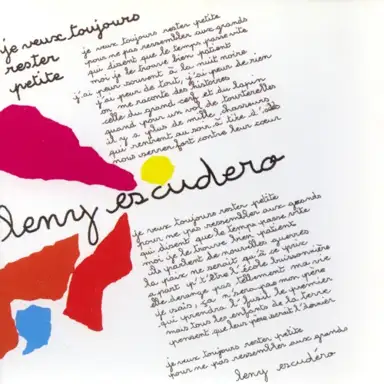 je veux toujours
rester
petite
je veux toujours rester petite
pour ne pas ressembler aux grands
qui disent que le temps passe vite
moi je le trouve bien patient
j'ai peur souvent à la nuit noire
j'ai peur de tout, j'ai peur de rien
on me raconte des histoires
celle du grand cerf et du lapin
quand pour un vol de tourterelles
il y a plus de mille chasseurs
qui rentrent au soir à tire d'
nous serrer fort contre leur cœur
leny escudero
je veux toujours rester petite
pour ne pas ressembler aux grands
qui disent que le temps passe vite
moi je le trouve bien patient
ils parlent de nouvelles guerres
la paix ne serait qu'à ce prix
à part p't'être l'école buissonnière
elle dérange pas tellement ma vie
je sais, ça n'sera pas mon père
qui prendra l'fusil le premier
mais tous les enfants de la terre
pensent que leur père serait l'dernier
je veux toujours rester petite
pour ne pas ressembler aux grands
leny escudéro